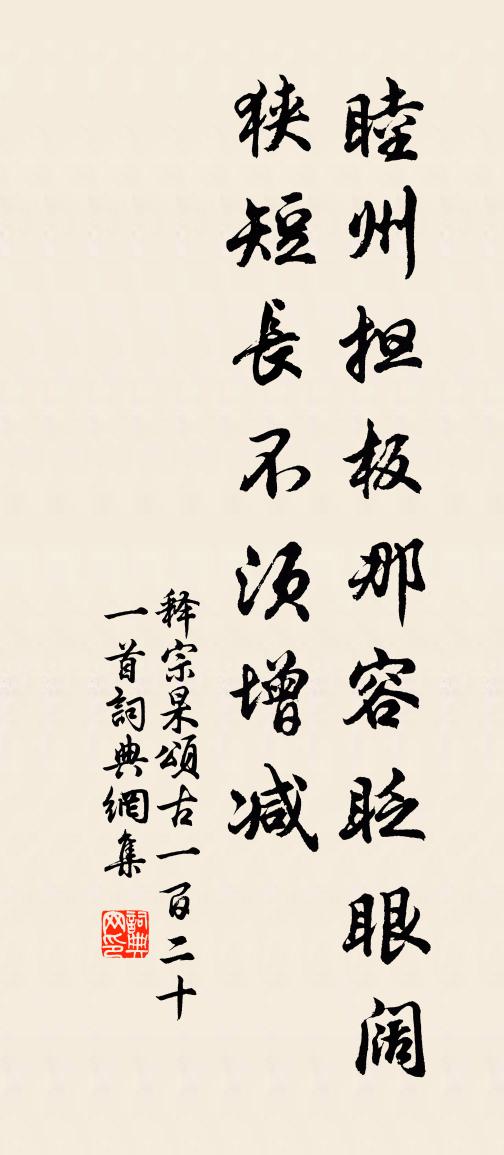 睦州担板那容眨眼阔
狭短長不须增减
释宗杲頌古一百二十
一首詞典網集
詞典网印